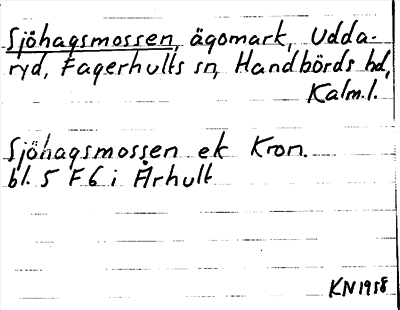 Sjöhagsmossen, ägomark, Udda-
ryd, Fagerhults sn, Handbörds hd,
Kalm. l.
Sjöhagsmossen ek Kron.
bl. 5 F 6 i Århult
KN 1958